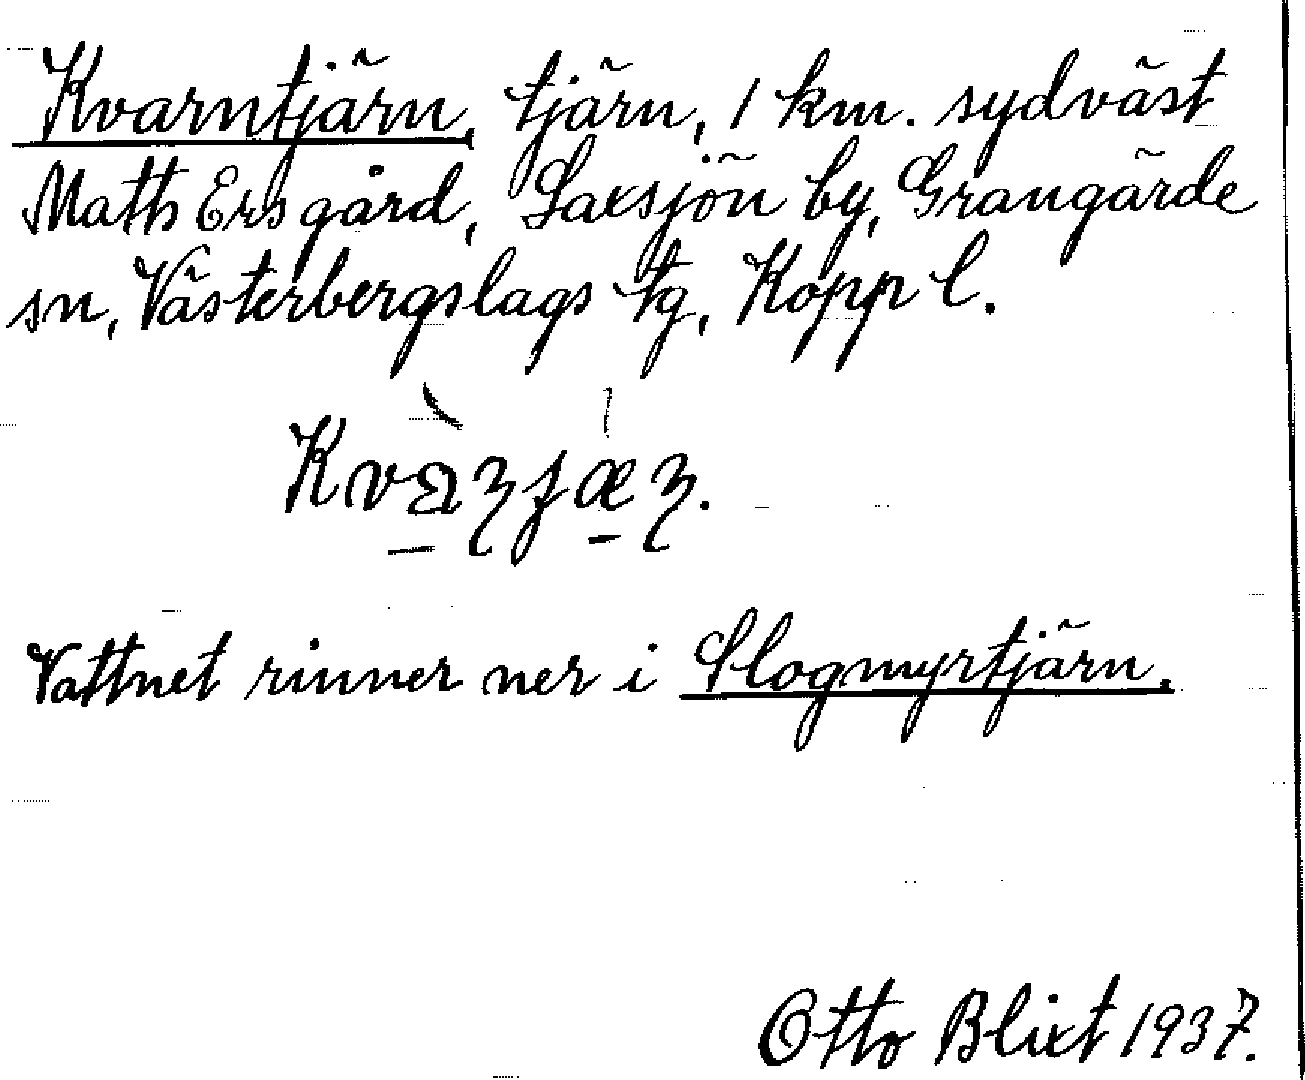 Kvarntjärn, tjärn, 1 km. sydväst
Maths Ersgård, Saxsjön by, Grangärde
sn, Västerbergslags tg, Kopp l.
Vattnet rinner ner i Slogmyrtjärn.
Otto Blixt 1937.